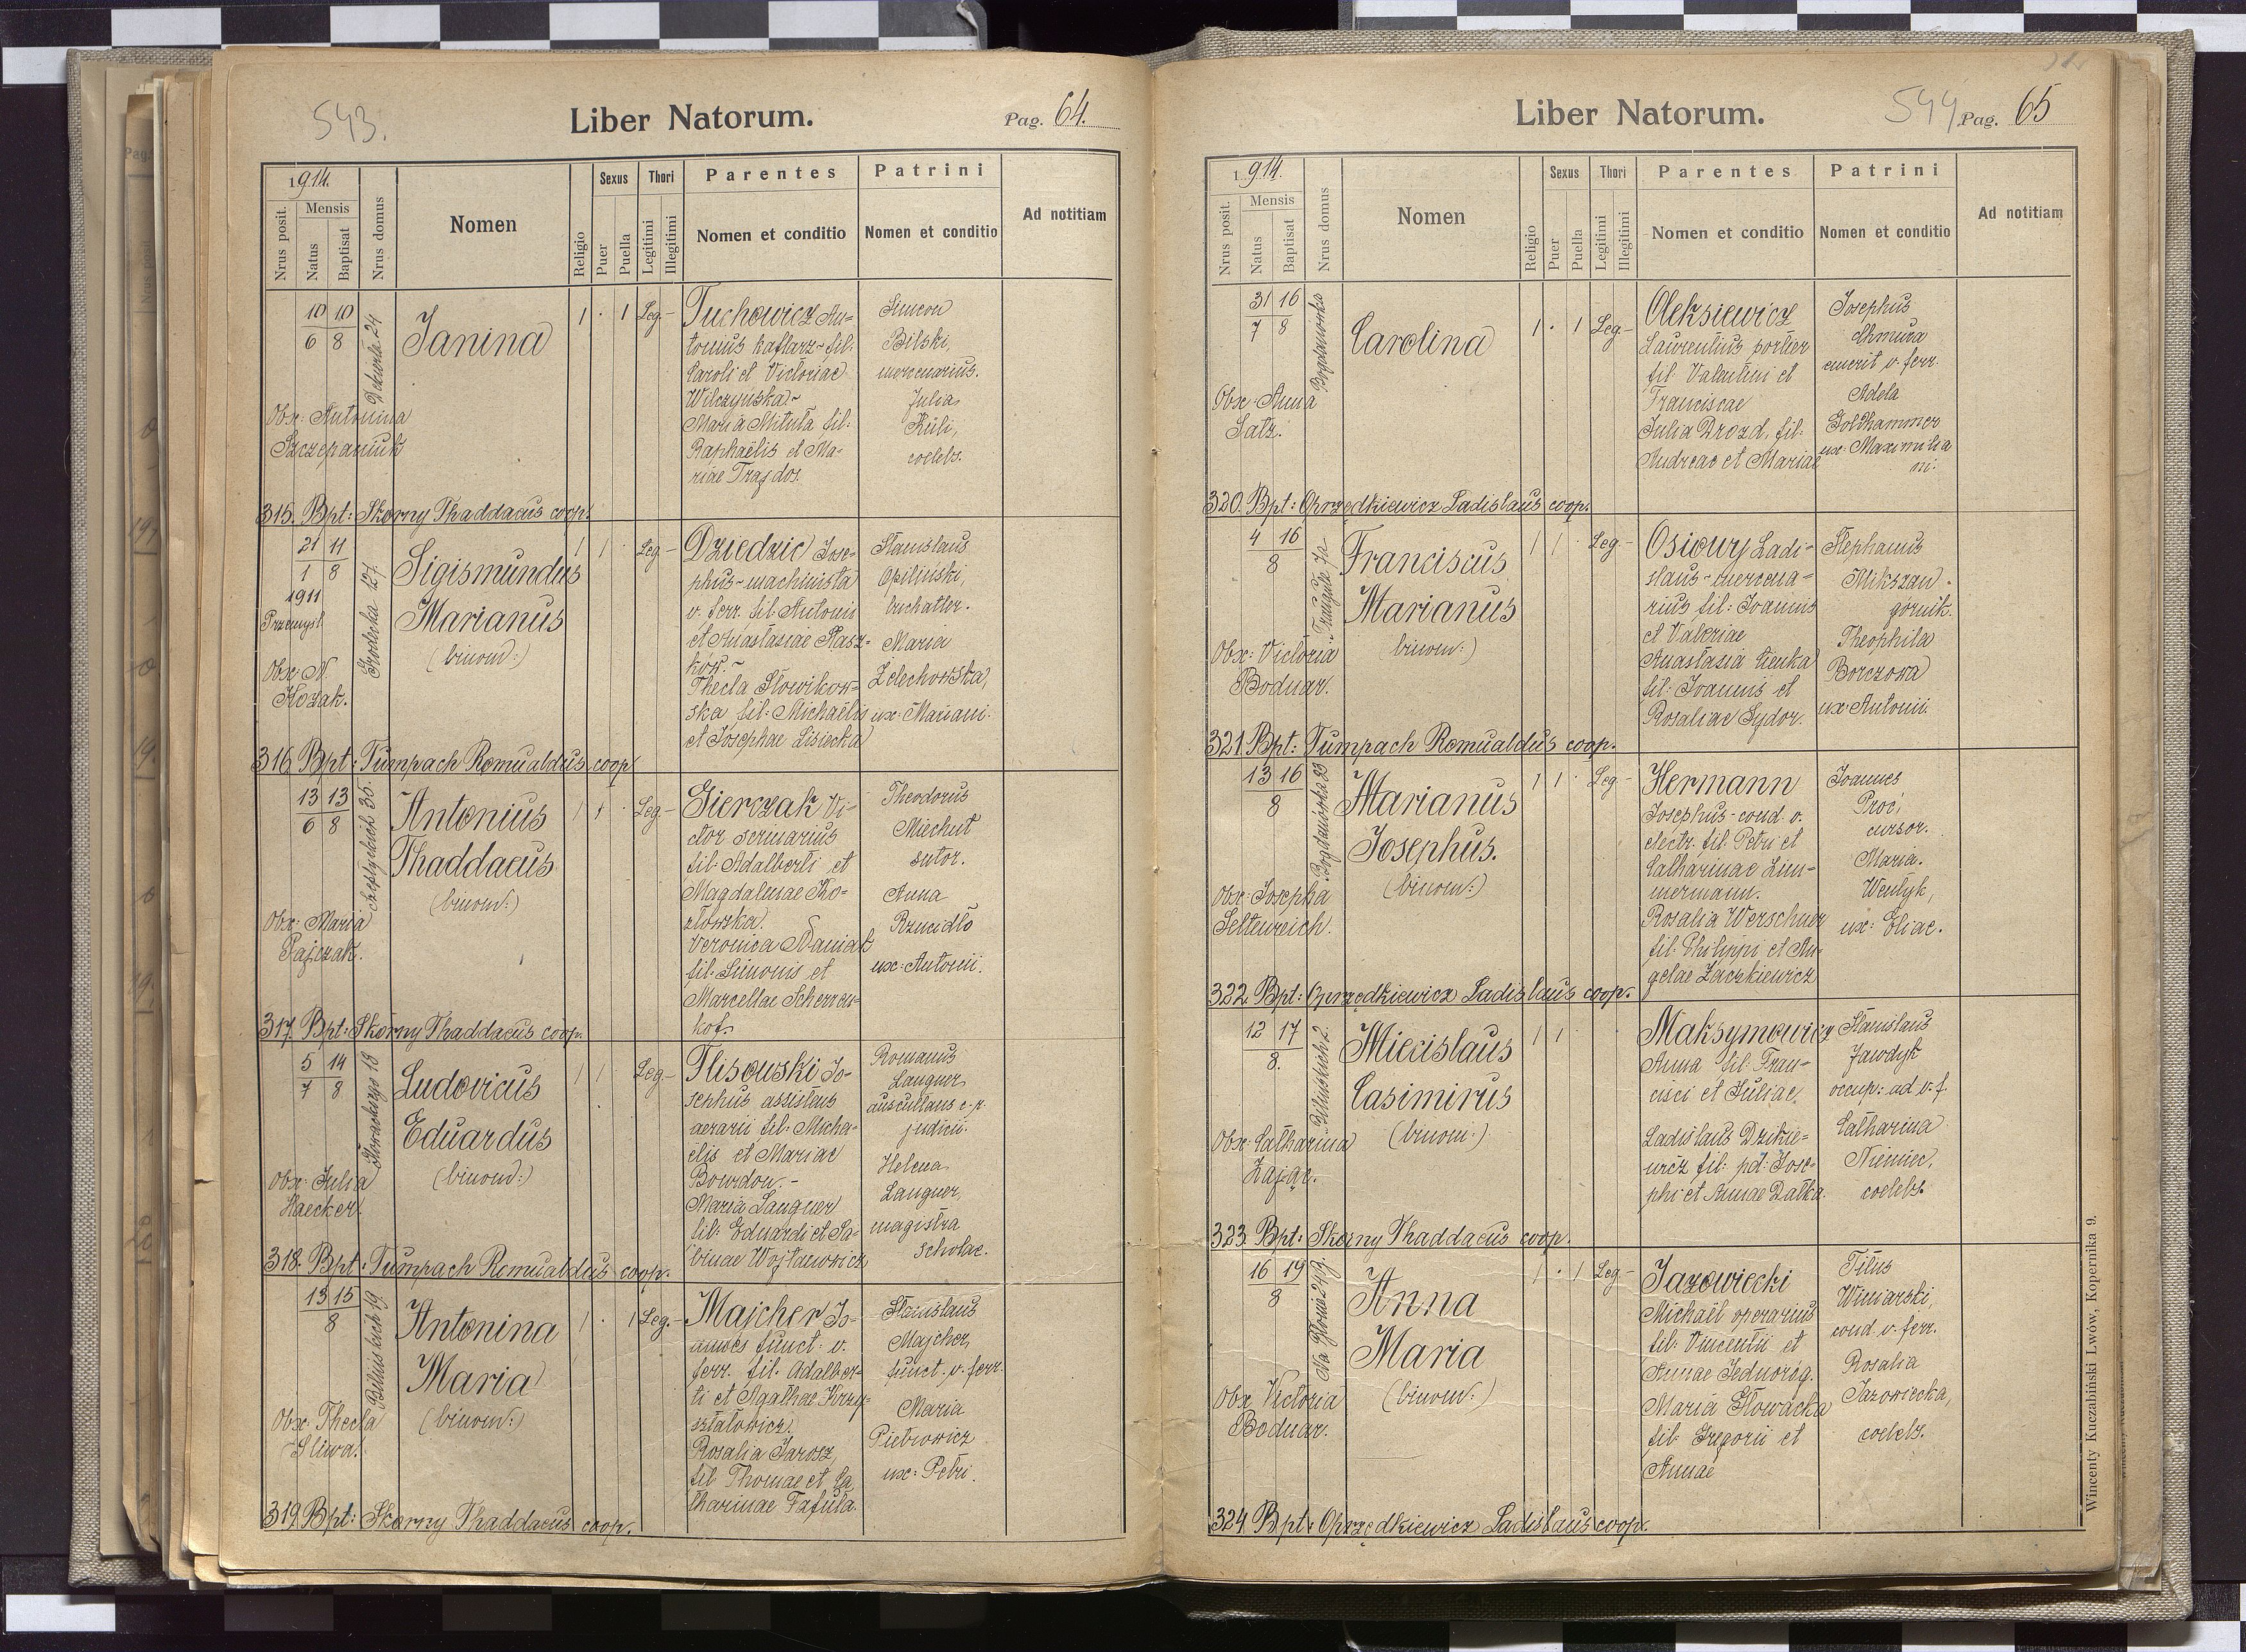 543.
Liber Natorum.
Pag. 64.
1914.
Nrus posit.
Mensis
Natus
Baptisat
Nrus domus
Nomen
Religio
Sexus
Puer
Puella
Thori
Legitimi
Illegitimi
Parentes
Nomen et conditio
Patrini
Nomen et conditio
Ad notitiam
10 10
6 8
Janina
1 · 1 Leg.-
Tuchowicz An=
tonius kaflarz - fil.
Caroli et Victoriae
Wilczyńska -
Maria Mituła fil:
Raphaëlis et Ma-
riae Trazdos.
Simeon
Bilski,
mercenarius.
Julia
Kuli,
coelebs.
Obx: Antonina
Szczepaniuk
315. Bpt: Skorny Thaddaeus coop.
21 11
1 8
1911
Przemyśl
Grodecka 127.
Sigismundus
Marianus
(binom:)
1 1 · Leg-
Dziedzic Jose-
phus - machinista
v. ferr. fil: Antonii
et Anastasiae Stasz-
ków. -
Thecla Słowikow-
ska fil: Michaëlis
et Josephae Lisiecka
Stanislaus
Opiliński,
buchalter.
Maria
Zelechowska,
ux: Mariani.
Obx: N.
Kozak.
316 Bpt: Tumpach Romualdus coop
13 13
6 8
35.
Antonius
Thaddaeus
(binom:)
1 1 · Leg-
Gierczak Vi-
ctor serrarius
fil: Adalberti et
Magdalenae Ko-
złowska.
Veronica Baniak
fil: Simonis et
Marcellae
Theodorus
Miechut
sutor.
Anna
Rzucidło
ux: Antonii.
Obx: Maria
Pajczak.
317. Bpt: Skorny Thaddaeus coop.
5 14
7 8
18
Ludovicus
Eduardus
(binom:)
1 1 · Leg.-
Flisowski Jo-
sephus assistens
aerarii fil: Micha-
ëlis et Mariae
Bourdon. -
Maria Langner
fil: Eduardi et Sa-
binae Wojtanowicz
Romanus
Langner,
auscultans c. r.
judicii.
Helena
Langner,
magistra
scholae.
Obx: Julia
Haecker.
318. Bpt: Tumpach Romualdus coop.
13 15
8
Bilińskich 19.
Antonina
Maria
(binom:)
1 · 1 Leg.-
Majcher Jo-
annes funct. v.
ferr. fil. Adalber-
ti et Agathae Krzy-
ształowicz.
Rosalia Jarosz,
fil Thomae et Ca
tharinae Fafuła.
Stanislaus
Majcher,
funct. v. ferr.
Maria
Pietrowicz
ux: Petri.
Obx: Thecla
Śliwa.
319. Bpt: Skorny Thaddaeus coop.
544.
Liber Natorum.
Pag. 65
1914.
Nrus posit.
Mensis
Natus
Baptisat
Nrus domus
Nomen
Religio
Sexus
Puer
Puella
Thori
Legitimi
Illegitimi
Parentes
Nomen et conditio
Patrini
Nomen et conditio
Ad notitiam
31 16
7 8
Bogdanówka
Carolina
1 · 1 Leg-
Oleksiewicz
Laurentius portier
fil: Valentini et
Franciscae
Julia Drozd, fil:
Andreae et Mariae
Josephus
Chmura
emerit v. ferr.
Adela
Goldhammer
ux: Maximilia
ni.
Obx: Anna
Satz.
320. Bpt: Oprzędkiewicz Ladislaus coop.
4 16
8
Franciscus
Marianus
(binom:)
1 1 · Leg-
Osiowy Ladi-
slaus - mercena-
rius fil: Joannis
et Valeriae
Anastasia
fil: Joannis et
Rosaliae Sydor.
Stephanus
Mikszan
górnik.
Theophila
Borczowa
ux Antonii.
Obx: Victoria
Bodnar.
321. Bpt: Tumpach Romualdus coop.
13 16
8
Bogdanówka 23
Marianus
Josephus.
(binom:)
1 1 · Leg-
Hermann
Josephus - cond. v.
electr. fil. Petri et
Catharinae Zim-
mermann.
Rosalia Werschner
fil: Philippi et An-
gelae Zaczkiewicz
Joannes
Proć,
cursor.
Maria.
Wenlyk,
ux: Eliae.
Obx: Josepha
Seltenreich.
322. Bpt: Oprzędkiewicz Ladislaus coop.
12 17
8.
Bilińskich 2.
Miecislaus
Casimirus
(binom:)
1 1
Maksymowicz
Anna fil: Fran-
cisci et Juliae.
Ladislaus Dzikie-
wicz fil: pd: Jose-
phi et Annae Dałka.
Stanislaus
Jawdyk
occup: ad v. f.
Catharina
Niemiec,
coelebs.
Obx: Catharina
Zając.
323. Bpt: Skorny Thaddaeus coop.
16 19
8
Na Błonie
Anna
Maria
(binom:)
1 · 1 Leg-
Jazowiecki
Michaël operarius
fil: Vincentii et
Annae Jednoróg.
Maria Głowacka
fil: Gregorii et
Annae
Titus
Winiarski,
cond. v. ferr.
Rosalia
Jazowiecka,
coelebs.
Obx Victoria
Bodnar.
324. Bpt: Oprzędkiewicz Ladislaus coop.
Wincenty Kuczabiński Lwów, Kopernika 9.